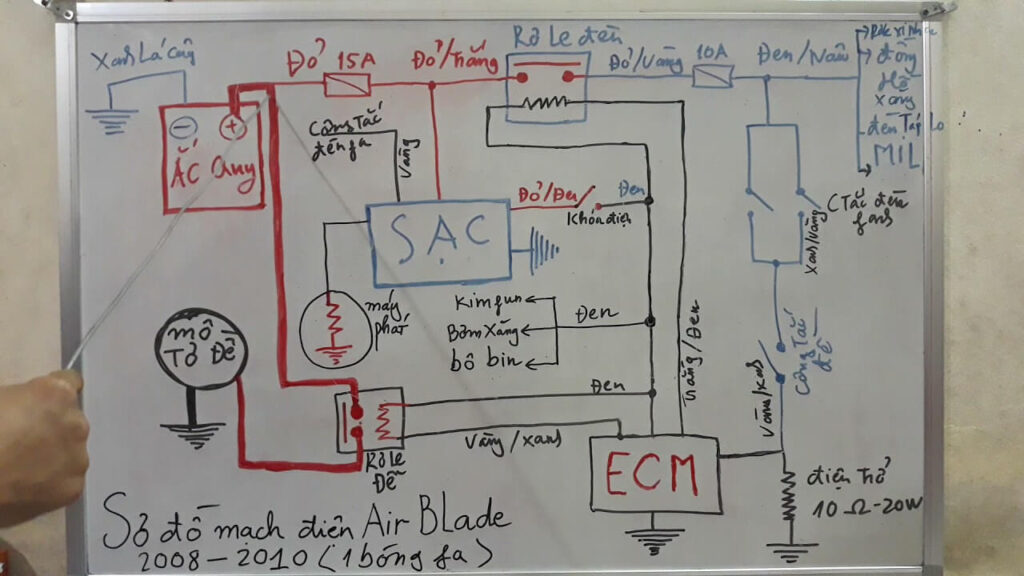 Xanh Lá Cây
Đỏ 15A
Đỏ/Trắng
Rơ Le đèn
Đỏ/Vàng
10A
Đen/Nâu
đồng
Hồ
xăng
đèn Táp Lo
MIL
ẮC Quy
Công Tắc
đèn fa
Vàng
SẠC
Đỏ/Đen
Đen
Khóa điện
CTắc đèn
fans
Xanh/Vàng
máy
phát
Kim fun
Bơm Xăng
bô bin
Đen
Trắng/Đen
Công Tắc
đề
Vàng/Xanh
mô
Tơ Đề
Đen
Vàng/Xanh
Rơ Le
Đề
ECM
điện Trở
10Ω-20W
Sơ đồ mạch điện Air Blade
2008-2010 (1 bóng fa)